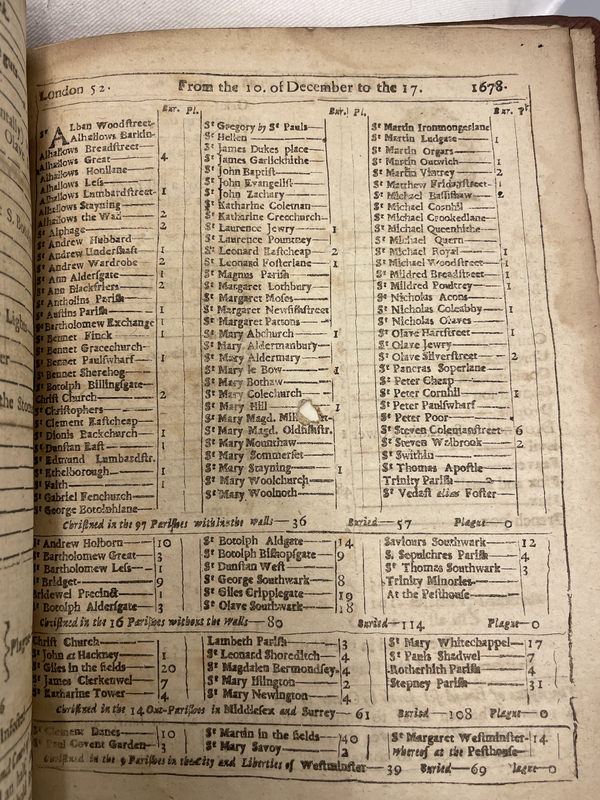 London 52.
From the 10. of December to the 17.
1678.
Bur. Pl.
St ALban Woodſtreet—
Alhallows Barkin—
Alhallows Breadſtreet—
Alhallows Great— 4
Alhallows Honilane—
Alhallows Leſs—
Alhallows Lumbardſtreet— 1
Alhallows Stayning—
Alhallows the Wall— 2
St Alphage— 2
St Andrew Hubbard—
St Andrew Underſhaft— 1
St Andrew Wardrobe— 2
St Ann Alderſgate— 1
St Ann Blackfriers— 2
St Antholins Pariſh—
St Auſtins Pariſh— 1
St Bartholomew Exchange 1
St Bennet Finck— 1
St Bennet Gracechurch—
St Bennet Paulſwharf— 1
St Bennet Sherehog—
St Botolph Billingſgate—
Chriſt Church— 2
St Chriſtophers—
St Clement Eaſtcheap—
St Dionis Backchurch— 1
St Dunſtan Eaſt— 1
St Edmund Lumbardſtr.
St Ethelborough— 1
St Faith— 1
St Gabriel Fenchurch—
St George Botolphlane—
Bur. Pl.
St Gregory by St Pauls—
St Hellen—
St James Dukes place—
St James Garlickhithe—
St John Baptiſt—
St John Evangeliſt—
St John Zachary—
St Katharine Coleman—
St Katharine Creechurch—
St Laurence Jewry— 1
St Laurence Pountney—
St Leonard Eaſtcheap— 2
St Leonard Foſterlane— 1
St Magnus Pariſh—
St Margaret Lothbury—
St Margaret Moſes—
St Margaret Newfiſhſtreet
St Margaret Pattons—
St Mary Abchurch— 1
St Mary Aldermanbury—
St Mary Aldermary—
St Mary le Bow— 1
St Mary Bothaw—
St Mary Colechurch—
St Mary Hill— 1
St Mary Magd.
St Mary Magd. Oldfiſhſtr.
St Mary Mounthaw—
St Mary Sommerſet—
St Mary Stayning— 1
St Mary Woolchurch—
St Mary Woolnoth—
Bur.
St Martin Ironmongerlane
St Martin Ludgate— 1
St Martin Orgars—
St Martin Outwich— 1
St Martin Vintrey— 2
St Matthew Fridayſtreet— 1
St Michael Baſſiſhaw— 2
St Michael Cornhil—
St Michael Crookedlane—
St Michael Queenhithe—
St Michael Quern—
St Michael Royal— 1
St Michael Woodſtreet— 1
St Mildred Breadſtreet— 1
St Mildred Poultrey— 1
St Nicholas Acons—
St Nicholas Coleabby— 1
St Nicholas Olaves—
St Olave Hartſtreet— 1
St Olave Jewry—
St Olave Silverſtreet— 2
St Pancras Soperlane—
St Peter Cheap—
St Peter Cornhil— 1
St Peter Paulſwharf—
St Peter Poor—
St Steven Colemanſtreet— 6
St Steven Walbrook— 2
St Swithin—
St Thomas Apoſtle—
Trinity Pariſh—
St Vedaſt alias Foſter—
Chriſtned in the 97 Pariſhes within the walls— 36 Buried— 57 Plague— 0
St Andrew Holborn— 10
St Bartholomew Great— 3
St Bartholomew Leſs— 1
St Bridget— 9
Bridewel Precinct— 1
St Botolph Alderſgate— 3
St Botolph Aldgate— 14
St Botolph Biſhopſgate— 9
St Dunſtan Weſt—
St George Southwark— 8
St Giles Cripplegate— 19
St Olave Southwark— 18
Saviours Southwark— 12
S. Sepulchres Pariſh— 4
St Thomas Southwark— 3
Trinity Minories—
At the Peſthouſe—
Chriſtned in the 16 Pariſhes without the Walls— 80 Buried— 114 Plague— 0
Chriſt Church—
St John at Hackney— 1
St Giles in the fields— 20
St James Clerkenwel— 7
St Katharine Tower— 4
Lambeth Pariſh— 3
St Leonard Shoreditch— 4
St Magdalen Bermondſey— 4
St Mary Iſlington— 2
St Mary Newington— 4
St Mary Whitechappel— 17
St Pauls Shadwel— 7
Rotherhith Pariſh— 4
Stepney Pariſh— 31
Chriſtned in the 14 Out-Pariſhes in Middleſex and Surrey— 61 Buried— 108 Plague— 0
St Clement Danes— 10
St Paul Covent Garden— 3
St Martin in the fields— 40
St Mary Savoy— 2
St Margaret Weſtminſter— 14
whereof at the Peſthouſe—
Chriſtned in the 9 Pariſhes in the City and Liberties of Weſtminſter— 39 Buried— 69 Plague— 0